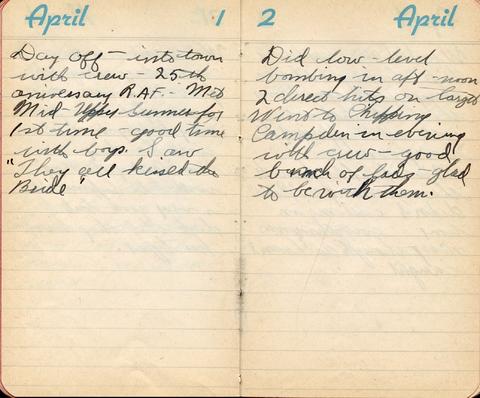 April 1
Day off - into town
with crew - 25th
aniversary R.A.F. - Met
Mid Upper Gunner for
1st time - good time
with boys. Saw
"They all kissed the
Bride"
2 April
Did low-level
bombing in aft-noon
2 direct hits on target
Went to Chipping
Campden in evening
with crew - good
bunch of lads - glad
to be with them.